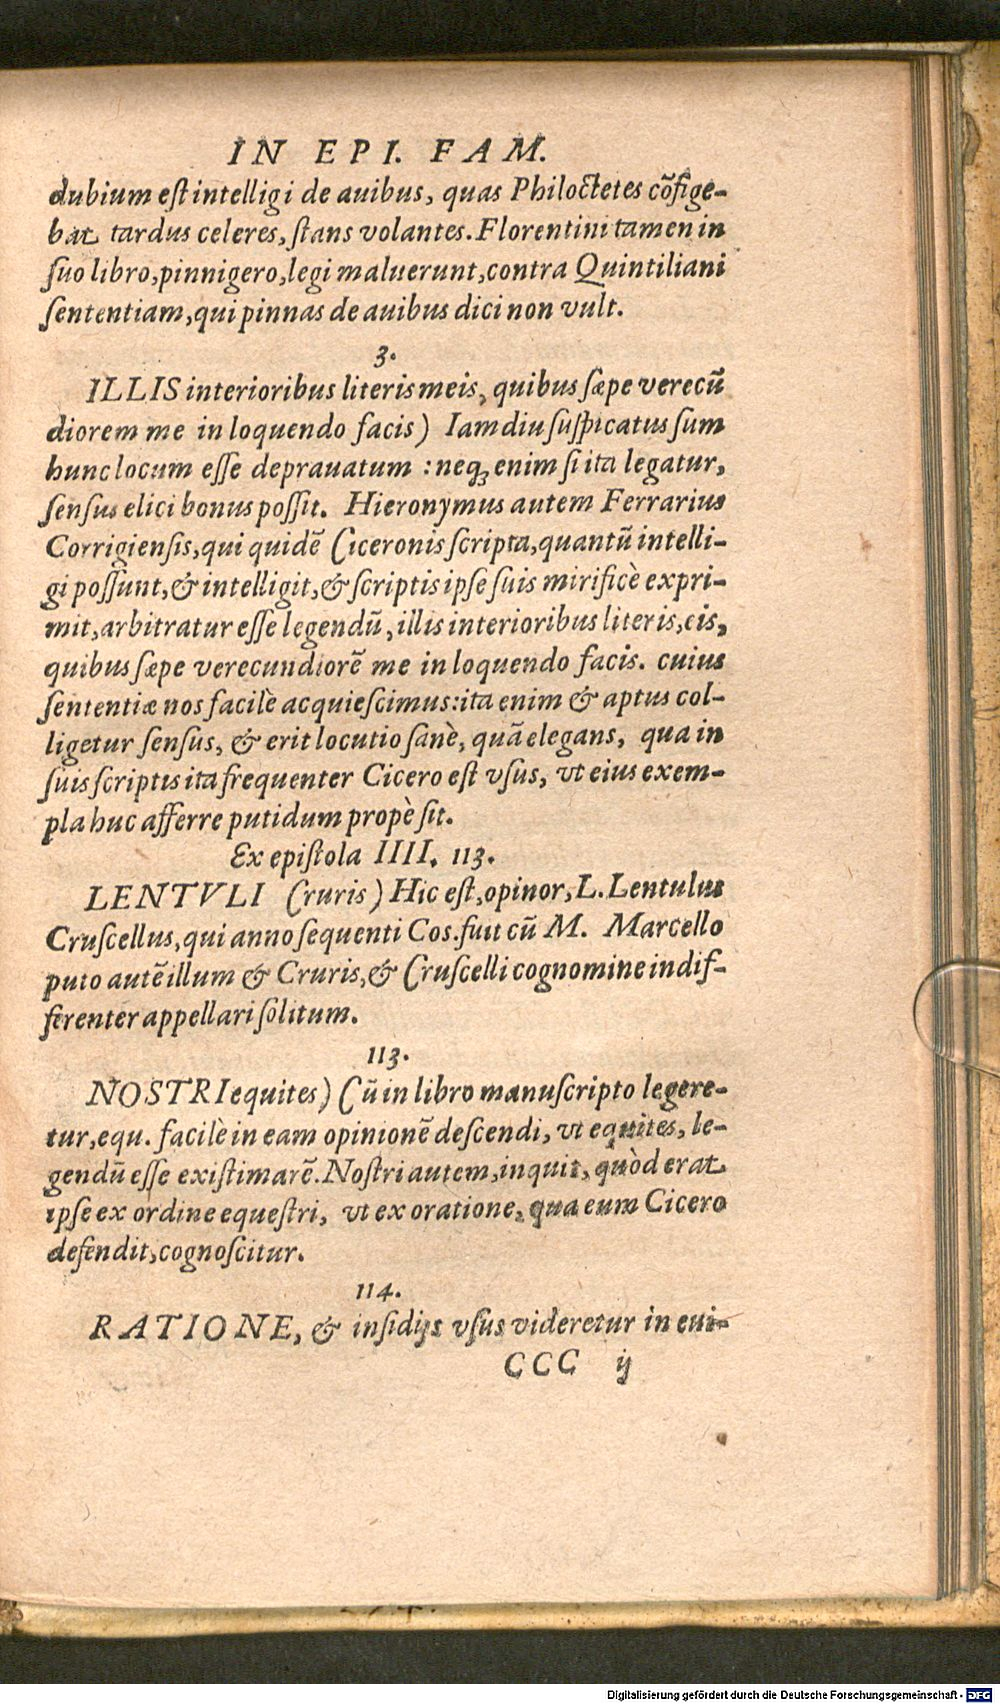 IN EPI. FAM.
dubium eſt intelligi de auibus, quas Philoctetes cõfige-
bat tardus celeres, ſtans volantes. Florentini tamen in
ſuo libro, pinnigero, legi maluerunt, contra Quintiliani
ſententiam, qui pinnas de auibus dici non vult.
3.
ILLIS interioribus literis meis, quibus ſæpe verecũ
diorem me in loquendo facis) Iamdiu ſuſpicatus ſum
hunc locum eſſe deprauatum : neq; enim ſi ita legatur,
ſenſus elici bonus poſſit. Hieronymus autem Ferrarius
Corrigienſis, qui quidẽ Ciceronis ſcripta, quantũ intelli-
gi poſſunt, & intelligit, & ſcriptis ipſe ſuis mirificè expri-
mit, arbitratur eſſe legendũ, illis interioribus literis, eis,
quibus ſæpe verecundiorẽ me in loquendo facis. cuius
ſententiæ nos facilè acquieſcimus: ita enim & aptus col-
ligetur ſenſus, & erit locutio ſanè, quã elegans, qua in
ſuis ſcriptis ita frequenter Cicero eſt vſus, vt eius exem-
pla huc afferre putidum propè ſit.
Ex epiſtola IIII. 113.
LENTVLI Cruris) Hic eſt, opinor, L. Lentulus
Cruſcellus, qui anno ſequenti Cos. fuit cũ M. Marcello
puto autẽ illum & Cruris, & Cruſcelli cognomine indif-
ferenter appellari ſolitum.
113.
NOSTRI equites) Cũ in libro manuſcripto legere-
tur, equ. facilè in eam opinionẽ deſcendi, vt equites, le-
gendũ eſſe exiſtimarẽ. Noſtri autem, inquit, quòd erat
ipſe ex ordine equeſtri, vt ex oratione, qua eum Cicero
defendit, cognoſcitur.
114.
RATIONE, & inſidijs vſus videretur in eui-
CCC ij
Digitalisierung gefördert durch die Deutsche Forschungsgemeinschaft - DFG